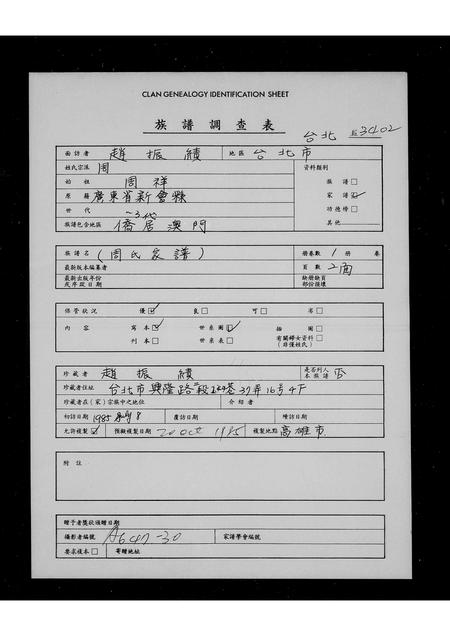 CLAN GENEALOGY IDENTIFICATION SHEET
族譜調查表
台北 3402
面訪者 趙振績 地區 台北市
姓氏宗派 周 資料類別
始祖 周祥 族譜□
原籍 廣東省新會縣 家譜☑
世代 一~3代 功德榜□
族譜包含地區 僑居澳門 其他
族譜名 (周氏家譜) 冊卷數 1 冊卷
最新版本編纂者 頁數 2面
最新出版年份或序跋日期 缺冊缺頁部份損壞
保管狀況 優☑ 良□ 可□ 劣□
內容 寫本☑ 世系圖☑ 插圖□
刊本□ 世系表□ 有關婦女資料□(非僅姓氏)
珍藏者 趙振績 是否列入本族譜 否
珍藏者住址 台北市興隆路 段 巷37弄16号4F
珍藏者在(家)宗族中之地位 介紹者
初訪日期 1985 8 覆訪日期 續訪日期
允許複製☑ 預擬複製日期 20 Oct 1985 複製地點 高雄市
附註
贈予者獎狀頒贈日期
攝影者編號 A647-30 家譜學會編號
要求複本□ 寄贈地址